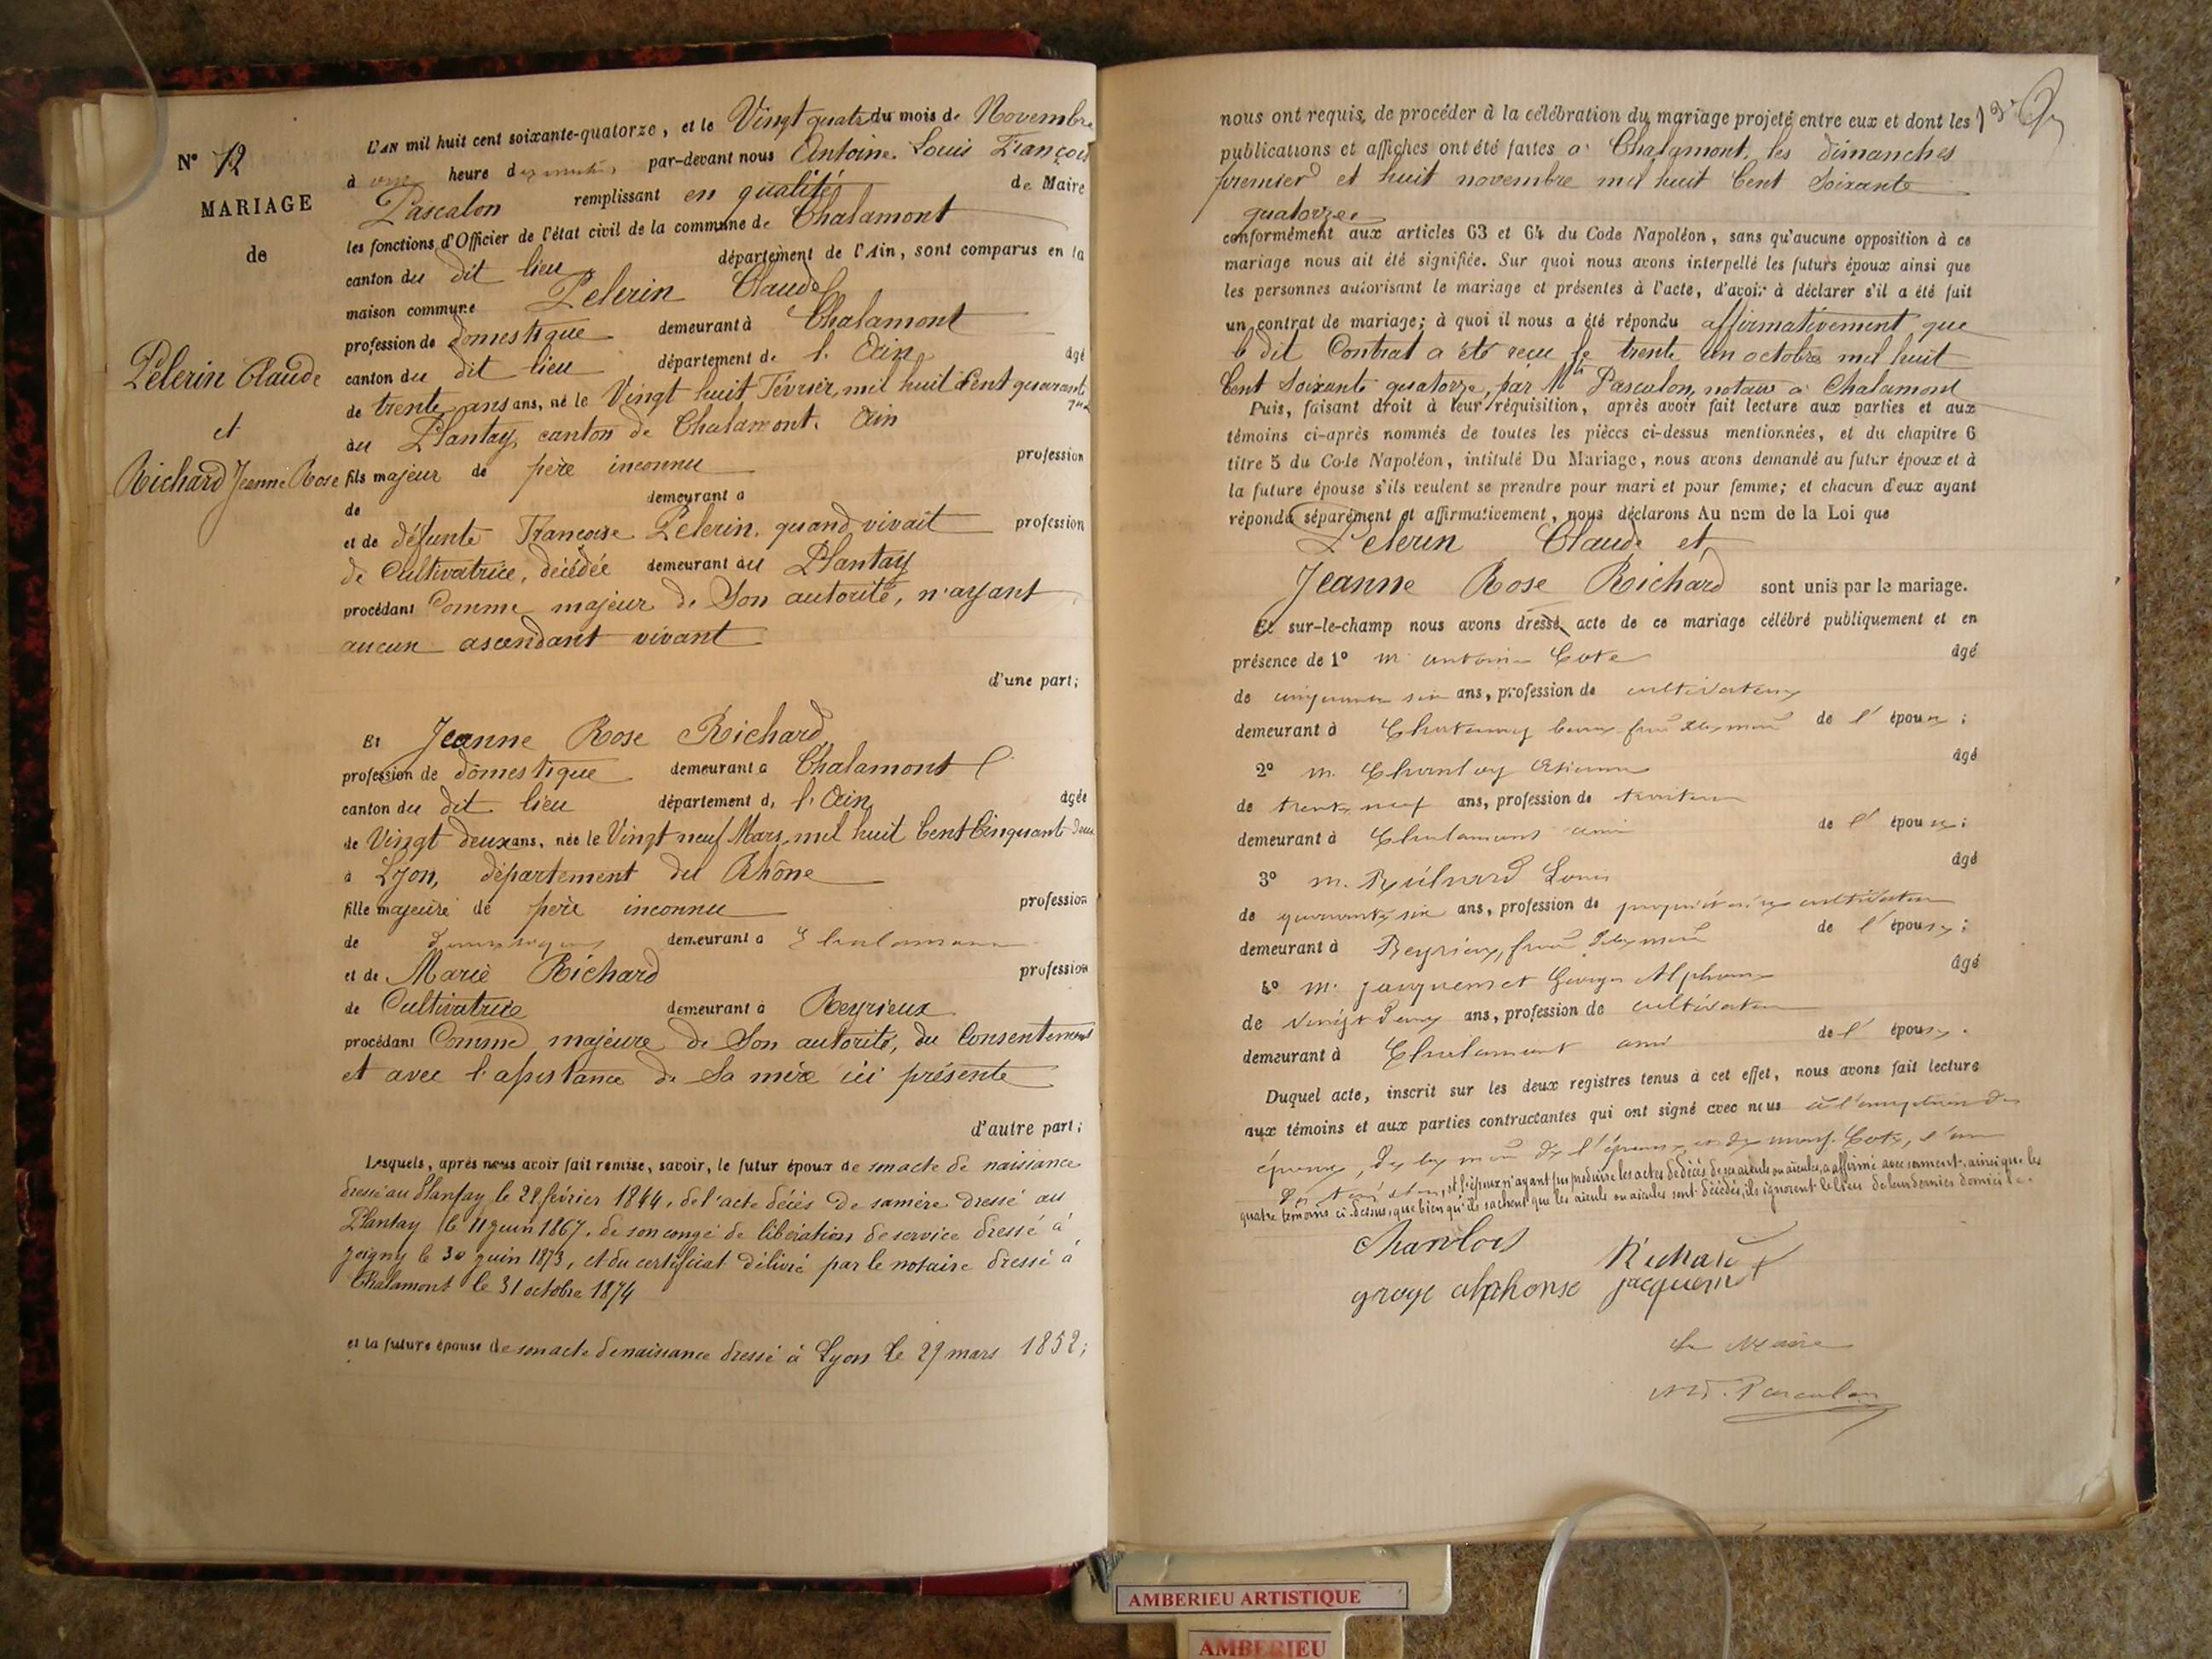 N° 12
MARIAGE
de
Pèlerin Claude
et
Richard Jeanne Rose
L'AN mil huit cent soixante-quatorze, et le Vingt quatre du mois de Novembre
à heure par-devant nous Antoine Louis François
Pascalon remplissant en qualité de Maire
les fonctions d'Officier de l'état civil de la commune de Chalamont
canton du dit lieu département de l'Ain, sont comparus en la
maison commune Pelerin Claude
profession de domestique demeurant à Chalamont
canton du dit lieu département de l'Ain âgé
de trente ans ans, né le Vingt huit Février, mil huit Cent quarante
au Plantay, canton de Chalamont. Ain
fils majeur de père inconnu profession
de demeurant à
et de défunte Françoise Pelerin, quand vivait profession
de Cultivatrice, décédée demeurant au Plantay
procédant Comme majeur de Son autorité, n'ayant
aucun ascendant vivant
d'une part;
Et Jeanne Rose Richard
profession de domestique demeurant à Chalamont
canton du dit lieu département de l'Ain âgée
de Vingt deux ans, née le Vingt neuf Mars, mil huit Cent Cinquante deux
à Lyon, département du Rhône
fille majeure de père inconnu profession
de demeurant à
et de Marie Richard profession
de Cultivatrice demeurant à Reyrieux
procédant Comme majeure de Son autorité, du Consentement
et avec l'assistance de Sa mère ici présente
d'autre part;
Lesquels, après nous avoir fait remise, savoir, le futur époux de son acte de naissance
dressé au Plantay le 28 février 1844, de l'acte décès de sa mère dressé au
Plantay le 11 juin 1867, de son congé de libération de service dressé à
Joigny le 30 juin 1873, et du certificat délivré par le notaire dressé à
Chalamont le 31 octobre 1874
et la future épouse de son acte de naissance dressé à Lyon le 29 mars 1852;
nous ont requis de procéder à la célébration du mariage projeté entre eux et dont les
publications et affiches ont été faites à Chalamont, les dimanches
premier et huit novembre mil huit Cent Soixante
quatorze
conformément aux articles 63 et 64 du Code Napoléon, sans qu'aucune opposition à ce
mariage nous ait été signifiée. Sur quoi nous avons interpellé les futurs époux ainsi que
les personnes autorisant le mariage et présentes à l'acte, d'avoir à déclarer s'il a été fait
un contrat de mariage; à quoi il nous a été répondu affirmativement que
le dit Contrat a été reçu le trente un octobre mil huit
Cent Soixante quatorze, par Me Pascalon, notaire à Chalamont
Puis, faisant droit à leur réquisition, après avoir fait lecture aux parties et aux
témoins ci-après nommés de toutes les pièces ci-dessus mentionnées, et du chapitre 6
titre 5 du Code Napoléon, intitulé Du Mariage, nous avons demandé au futur époux et à
la future épouse s'ils veulent se prendre pour mari et pour femme; et chacun d'eux ayant
répondu séparément et affirmativement, nous déclarons Au nom de la Loi que
Pelerin Claude et
Jeanne Rose Richard sont unis par le mariage.
Et sur-le-champ nous avons dressé acte de ce mariage célébré publiquement et en
présence de 1° m antoine Cote âgé
de cinquante six ans, profession de cultivateur
demeurant à beau frère de la mère de l'épouse;
2° m. âgé
de trente neuf ans, profession de
demeurant à Chalamont ami de l'épouse;
3° m. Richard Louis âgé
de quarante six ans, profession de propriétaire cultivateur
demeurant à Reyrieux, frère de la mère de l'épouse;
4° m. jacquemet Alphonse âgé
de vingt deux ans, profession de cultivateur
demeurant à Chalamont ami de l'épouse.
Duquel acte, inscrit sur les deux registres tenus à cet effet, nous avons fait lecture
aux témoins et aux parties contractantes qui ont signé avec nous à l'exception des
époux, de la mère de l'épouse et de Cote, l'un
des témoins, et l'époux n'ayant pu produire les actes de décès de ses aïeuls ou aïeules, a affirmé avec serment, ainsi que les
quatre témoins ci-dessus, que bien qu'ils sachent que les aïeuls ou aïeules sont décédés, ils ignorent le lieu de leur dernier domicile.
Richard
alphonse jacquemet
Le Maire
Pascalon
AMBERIEU ARTISTIQUE
AMBERIEU